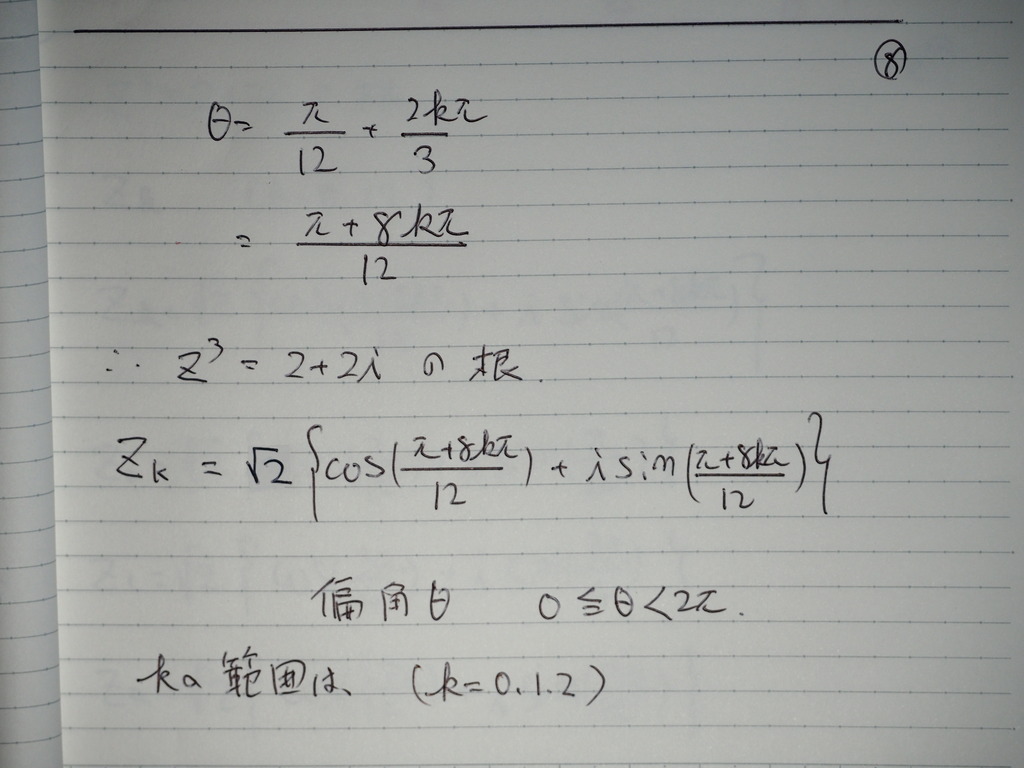 ⑧
θ = π/12 + 2kπ/3
= (π + 8kπ)/12
∴ z³ = 2+2i の 根.
Zₖ = √2 {cos((π+8kπ)/12) + i sin((π+8kπ)/12)}
偏角θ 0 ≦ θ < 2π.
kの範囲は、 (k=0.1.2)